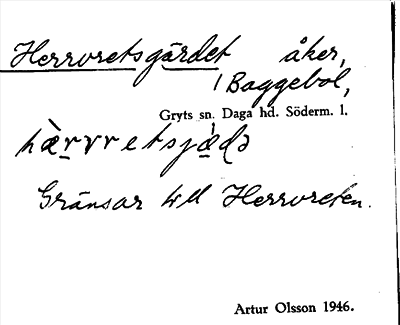 Herrvretsgärdet åker,
/Baggebol,
Gryts sn. Daga hd. Söderm. l.
Gränsar till Herrvreten.
Artur Olsson 1946.